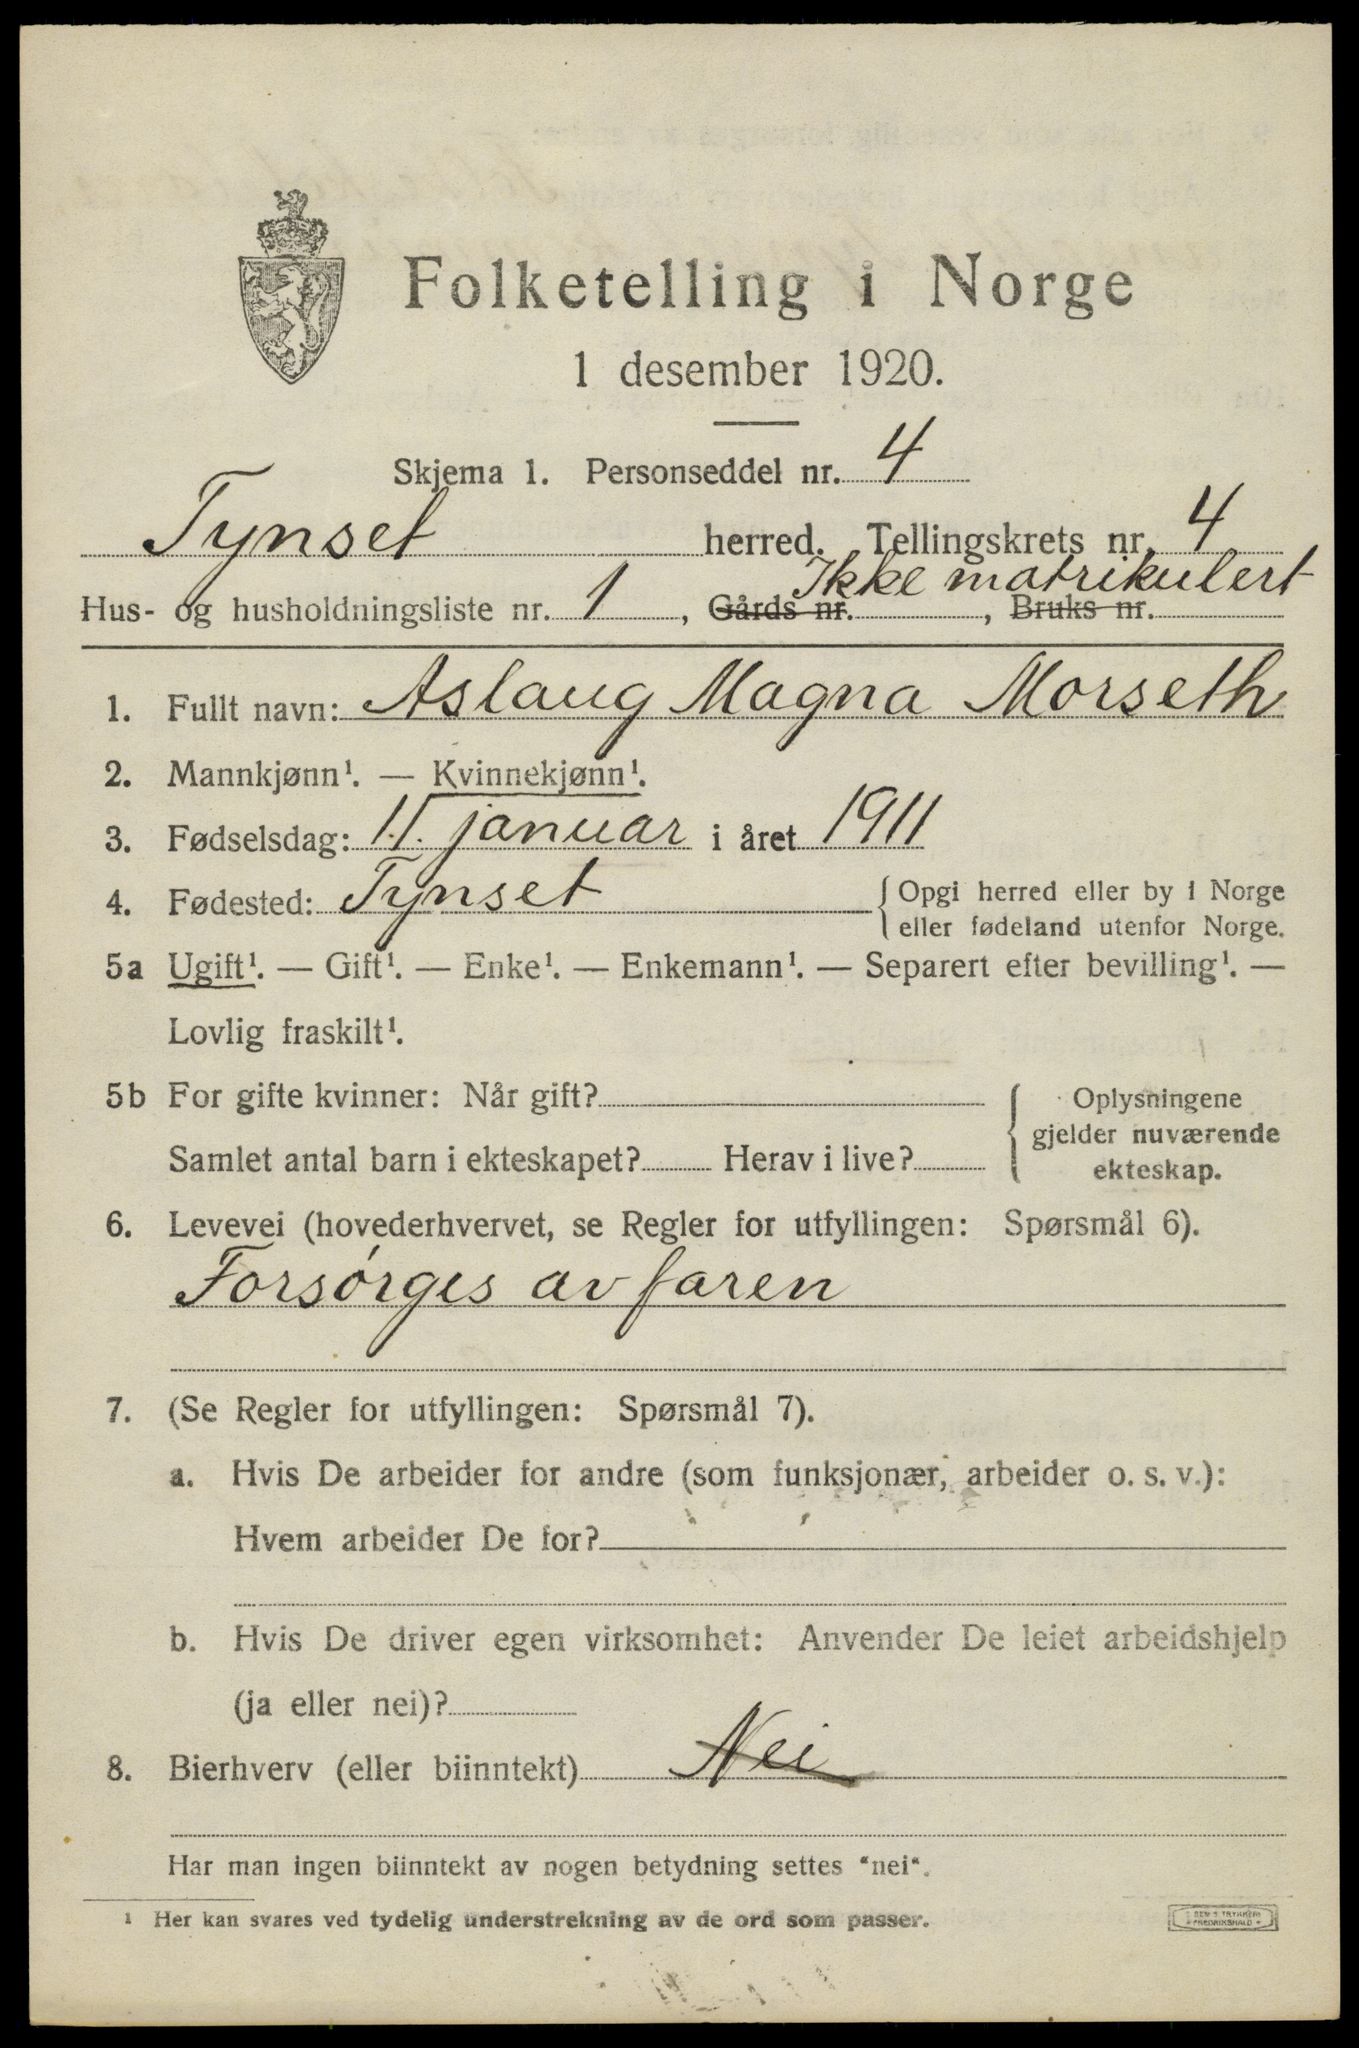 Folketelling i Norge
1 desember 1920.
Skjema 1. Personseddel nr. 4
Tynset herred. Tellingskrets nr. 4
Ikke matrikulert
Hus- og husholdningsliste nr. 1, Gårds nr. , Bruks nr.
1. Fullt navn: Aslaug Magna Morseth
2. Mannkjønn¹. — Kvinnekjønn¹.
3. Fødselsdag: januar i året 1911
4. Fødested: Tynset {Opgi herred eller by i Norge
eller fødeland utenfor Norge.
5a Ugift¹. — Gift¹. — Enke¹. — Enkemann¹. — Separert efter bevilling¹. —
Lovlig fraskilt¹.
5b For gifte kvinner: Når gift? { Oplysningene
gjelder nuværende
Samlet antal barn i ekteskapet? Herav i live?
ekteskap.
6. Levevei (hovederhvervet, se Regler for utfyllingen: Spørsmål 6).
Forsørges av faren
7. (Se Regler for utfyllingen: Spørsmål 7).
a. Hvis De arbeider for andre (som funksjonær, arbeider o. s. v.):
Hvem arbeider De for?
b. Hvis De driver egen virksomhet: Anvender De leiet arbeidshjelp
(ja eller nei)?
8. Bierhverv (eller biinntekt) Nei
Har man ingen biinntekt av nogen betydning settes "nei".
¹ Her kan svares ved tydelig understrekning av de ord som passer.